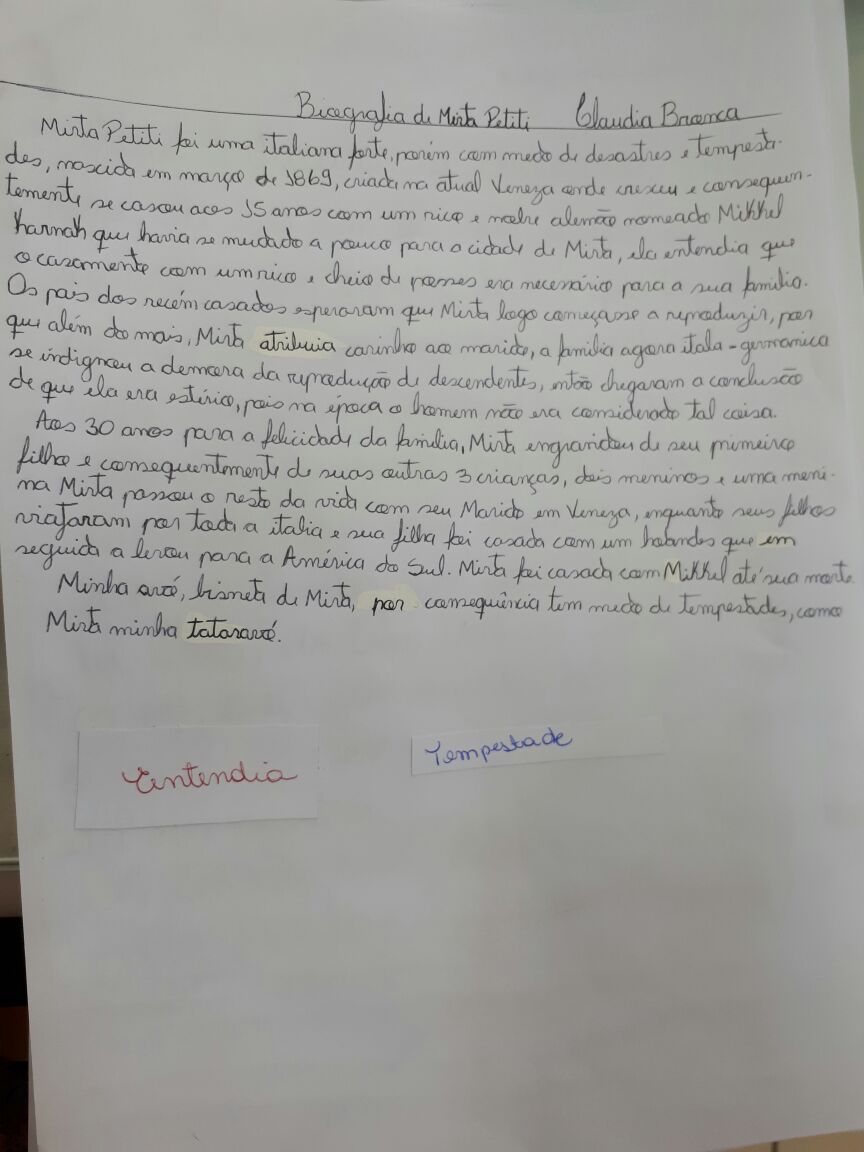 Biografia de Mirta Petiti Claudia Branca
Mirta Petiti foi uma italiana forte, porém com medo de desastres e tempesta-
des, nascida em março de 1869, criada na atual Veneza onde cresceu e consequen-
temente se casou aos 15 anos com um rico e nobre alemão nomeado Mikkel
Harnah que havia se mudado a pouco para a cidade de Mirta, ela entendia que
o casamento com um rico e cheio de posses era necessário para a sua familia.
Os pais dos recém casados esperaram que Mirta logo começasse a reproduzir, por
que além do mais, Mirta atribuia carinho ao marido, a familia agora italo-germanica
se indignou a demora da reprodução de descendentes, então chegaram a conclusão
de que ela era estéril, pois na época o homem não era considerado tal coisa.
Aos 30 anos para a felicidade da familia, Mirta engravidou de seu primeiro
filho e consequentemente de suas outras 3 crianças, dois meninos e uma meni-
na Mirta passou o resto da vida com seu Marido em Veneza, enquanto seus filhos
viajaram por toda a italia e sua filha foi casada com um holandes que em
seguida a levou para a América do Sul. Mirta foi casada com Mikkel até sua morte.
Minha avó, bisneta de Mirta, por consequência tem medo de tempestades, como
Mirta minha tataravó.
Entendia
Tempestade